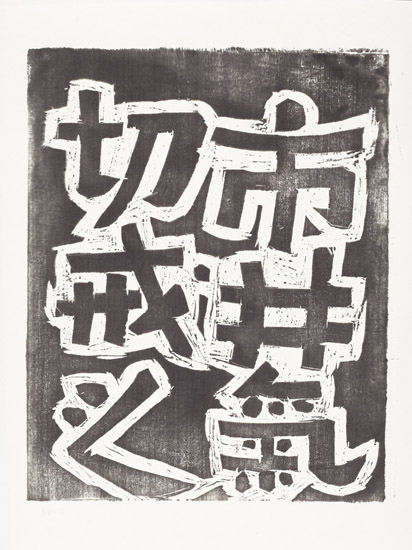 市井氣
切戒之